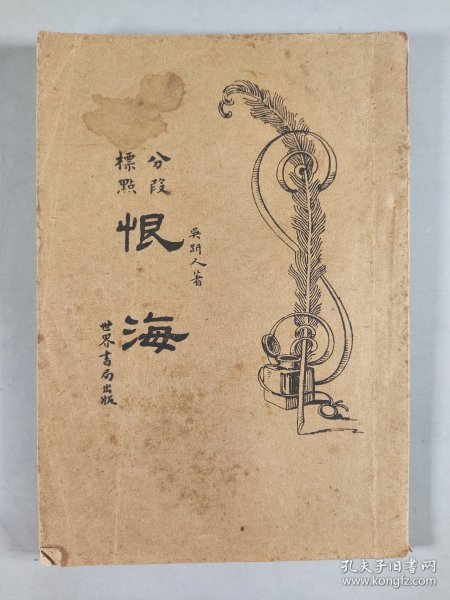 分段
標點
恨海
吳趼人著
世界書局出版
孔夫子旧书网
www.kongfz.com